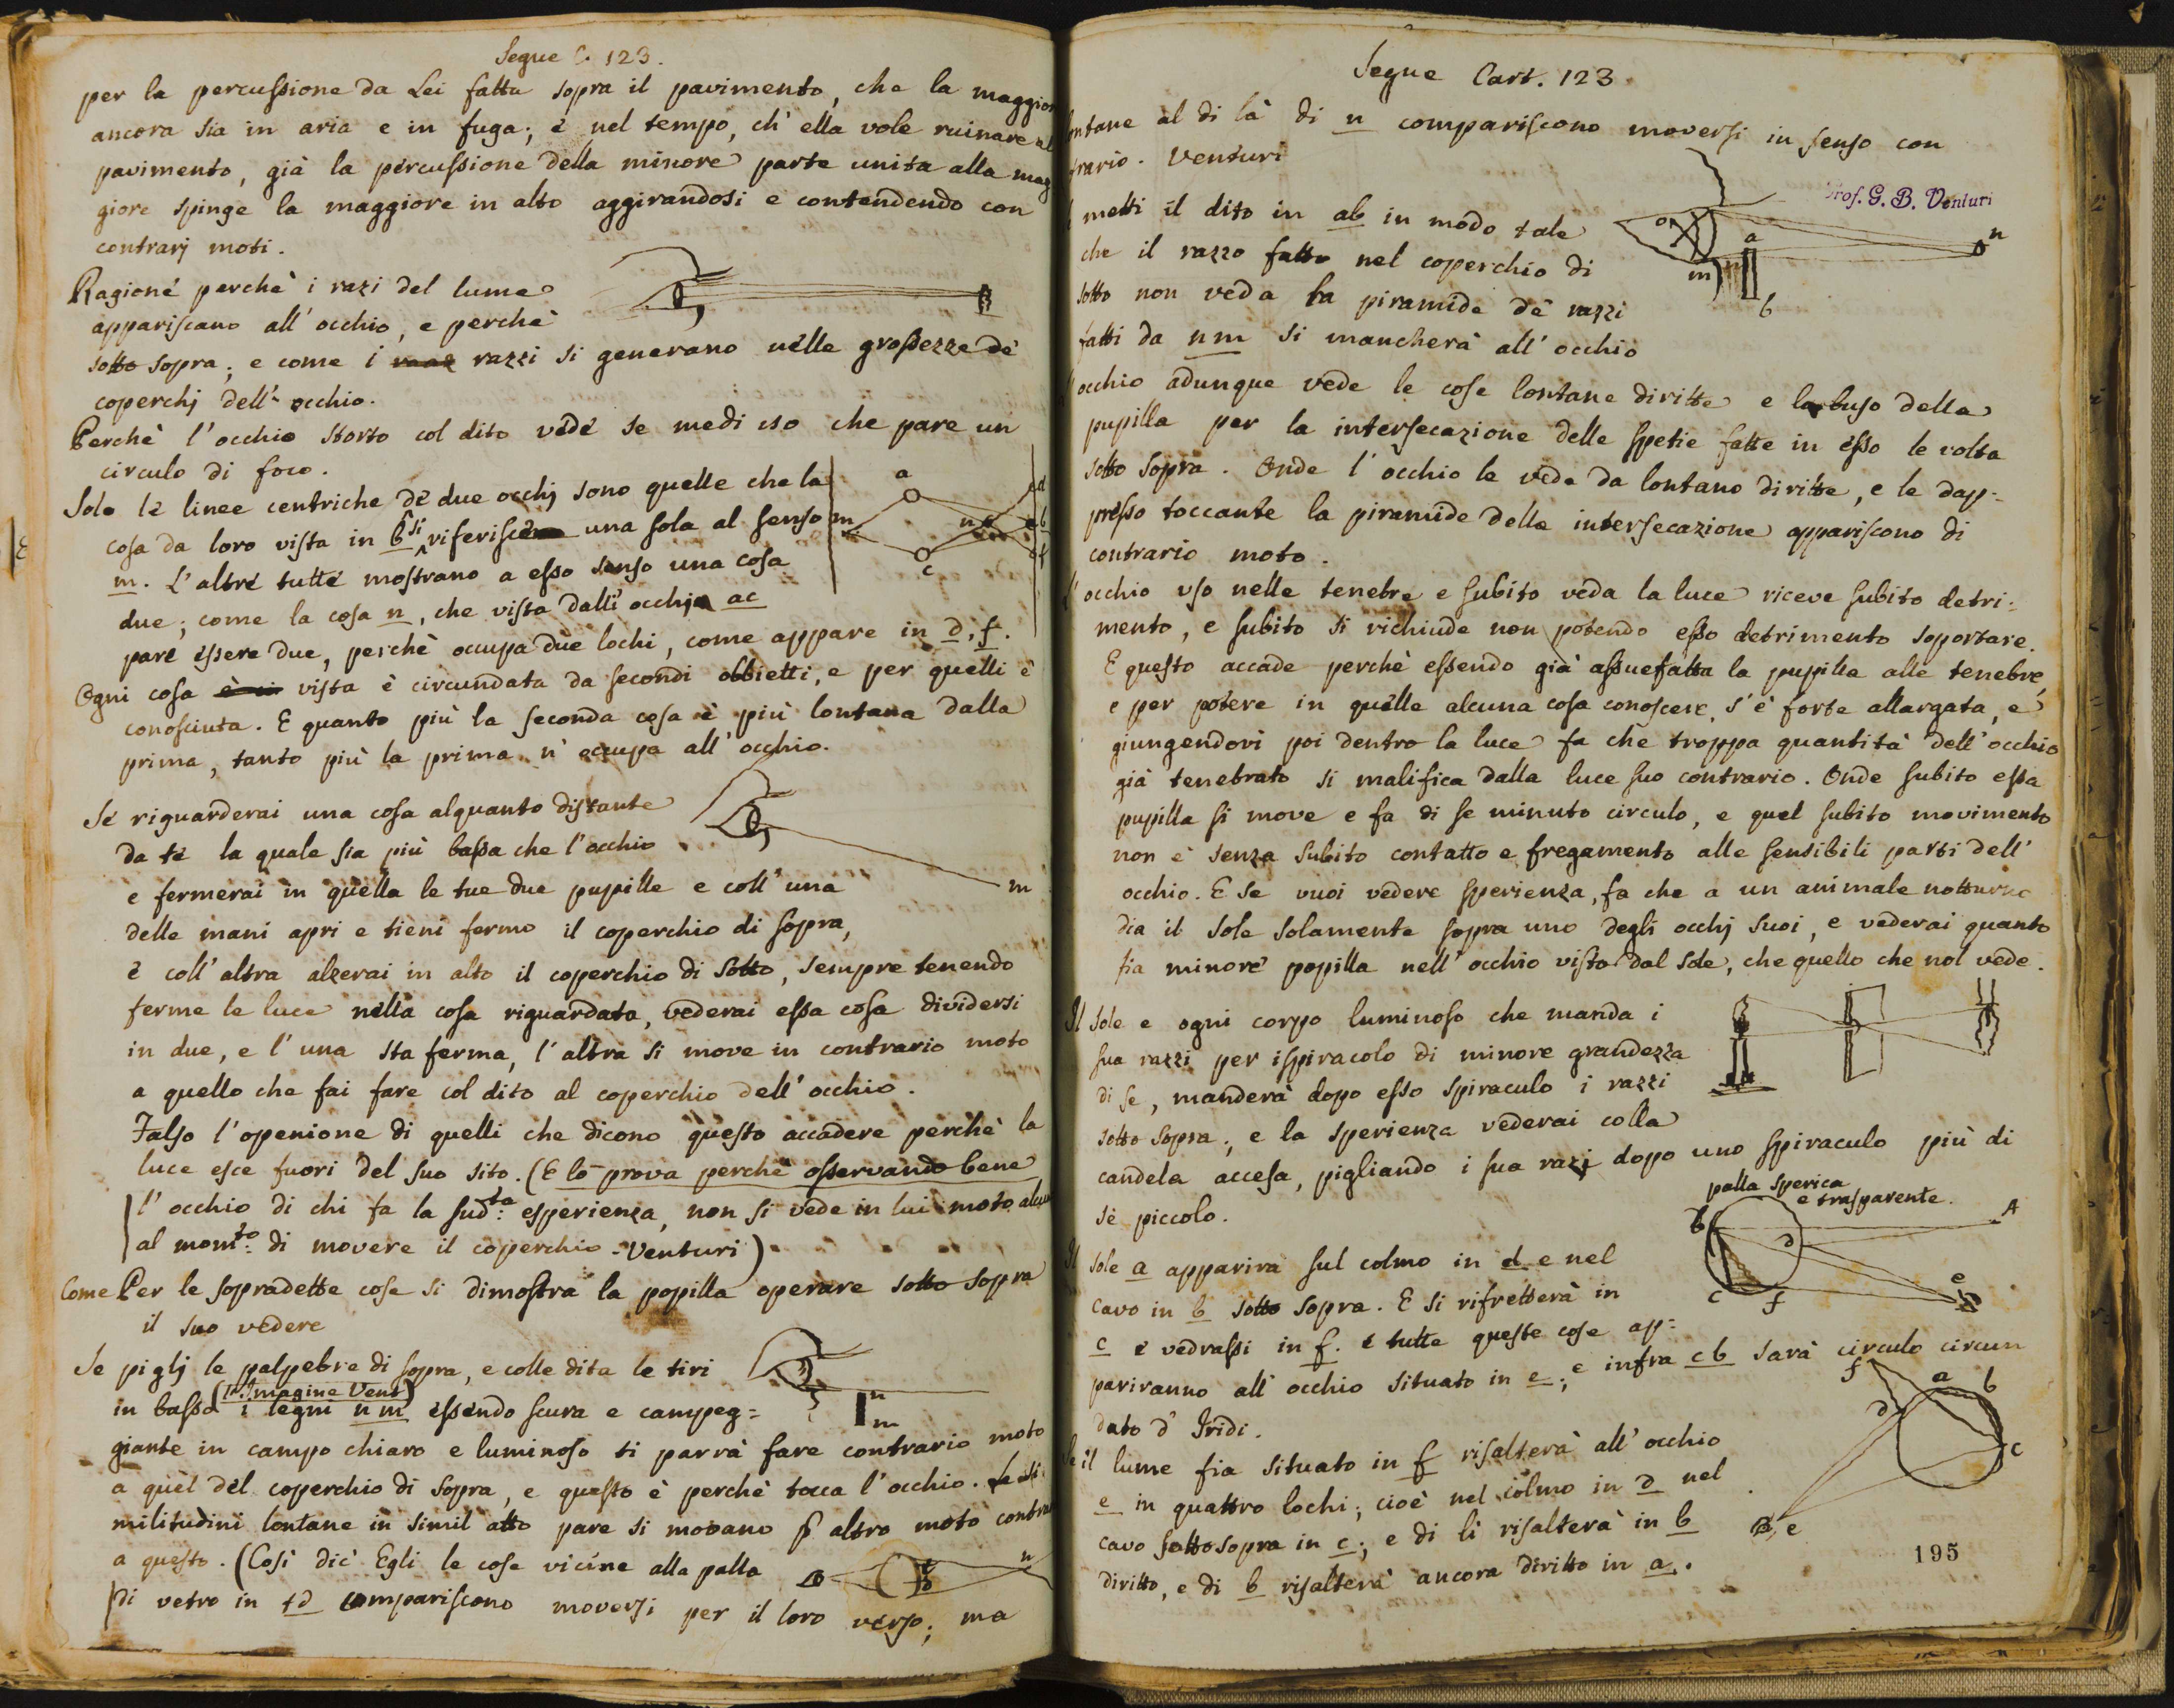 Segue C. 123.
per la percussione da Lei fatta sopra il pavimento, che la maggior
ancora sia in aria e in fuga; e nel tempo, ch' ella vole ruinare al
pavimento, già la percussione della minore parte unita alla mag
giore spinge la maggiore in alto aggirandosi e contendendo con
contrarj moti.
Ragione perchè i razi del lume
appariscano all' occhio, e perchè
sotto sopra; e come i razzi si generano nelle grossezze de'
coperchj dell' occhio.
Perchè l'occhio storto col dito vede se medi iso che pare un
circulo di foco.
Solo le linee centriche de' due occhj sono quelle che la
cosa da loro vista in b si riferisce una sola al senso
m. L'altre tutte mostrano a esso senso una cosa
due; come la cosa n, che vista dalli occhj ac
pare essere due, perchè occupa due lochi, come appare in d, f.
a
m
n
d
b
f
c
Ogni cosa vista è circundata da secondi obbietti, e per quelli è
conosciuta. E quanto più la seconda cosa è più lontana dalla
prima, tanto più la prima n' occupa all' occhio.
Se riguarderai una cosa alquanto distante
da te la quale sia più bassa che l'occhio
e fermerai in quella le tue due pupille e coll' una
m
delle mani apri e tieni fermo il coperchio di sopra,
e coll' altra alzerai in alto il coperchio di sotto, sempre tenendo
ferme le luce nella cosa riguardata, vederai essa cosa dividersi
in due, e l' una sta ferma, l' altra si move in contrario moto
a quello che fai fare col dito al coperchio dell' occhio.
Falso l'openione di quelli che dicono questo accadere perchè la
luce esce fuori del suo sito. (E lo prova perchè osservando bene
l' occhio di chi fa la sud.ta esperienza, non si vede in lui moto alcun
al mom.to di movere il coperchio - Venturi)
Come Per le sopradette cose si dimostra la popilla operare sotto sopra
il suo vedere
Se piglj le palpebre di sopra, e colle dita le tiri
in basso (Immagine Vent) i legni n m essendo scura e campeg=
n
m
giante in campo chiaro e luminoso ti parrà fare contrario moto
a quel del coperchio di sopra, e questo è perchè tocca l'occhio. Le si
militudini lontane in simil atto pare si movano p altro moto contra
a questo. (Così dic' Egli le cose vicine alla palla
di vetro in td compariscono moversi per il loro verso; ma
t
d
n
Segue Cart. 123
ontane al di là di n compariscono moversi in senso con
trario. Venturi
Prof. G. B. Venturi
metti il dito in ab in modo tale
che il razzo fatto nel coperchio di
sotto non veda la piramide de' razzi
fatti da nm si mancherà all' occhio
o
a
n
m
b
occhio adunque vede le cose lontane diritte e la buso della
pupilla per la intersecazione delle spetie fatte in esso le volta
sotto sopra. Onde l' occhio le vede da lontano diritte, e le dap=
presso toccante la piramide della intersecazione appariscono di
contrario moto.
L' occhio uso nelle tenebre e subito veda la luce riceve subito detri=
mento, e subito si richiude non potendo esso detrimento soportare.
E questo accade perchè essendo già assuefatta la pupilla alle tenebre,
e per potere in quelle alcuna cosa conoscere, s' è forte allargata, e
giungendovi poi dentro la luce fa che troppa quantità dell' occhio
già tenebrato si malifica dalla luce suo contrario. Onde subito essa
pupilla si move e fa di se minuto circulo, e quel subito movimento
non è senza subito contatto e fregamento alle sensibili parti dell'
occhio. E se vuoi vedere sperienza, fa che a un animale notturno
dia il Sole solamente sopra uno degli occhj suoi, e vederai quanto
fia minore popilla nell' occhio visto dal Sole, che quello che nol vede.
Il Sole e ogni corpo luminoso che manda i
sua razzi per ispiracolo di minore grandezza
di se, manderà dopo esso spiraculo i razzi
sotto sopra; e la sperienza vederai colla
candela accesa, pigliando i sua razj dopo uno spiraculo più di
sè piccolo.
palla sperica
e trasparente.
b
A
d
e
c
f
Il Sole a apparirà sul colmo in d e nel
cavo in b sotto sopra. E si rifretterà in
c e vedrassi in f. e tutte queste cose ap=
pariranno all' occhio situato in e; e infra cb sarà circulo circun
dato d' Iridi.
Se il lume fia situato in f risalterà all' occhio
e in quattro lochi; cioè nel colmo in d nel
cavo sottosopra in c; e di lì risalterà in b
diritto, e di b risalterà ancora diritto in a.
f
a
b
d
c
e
195